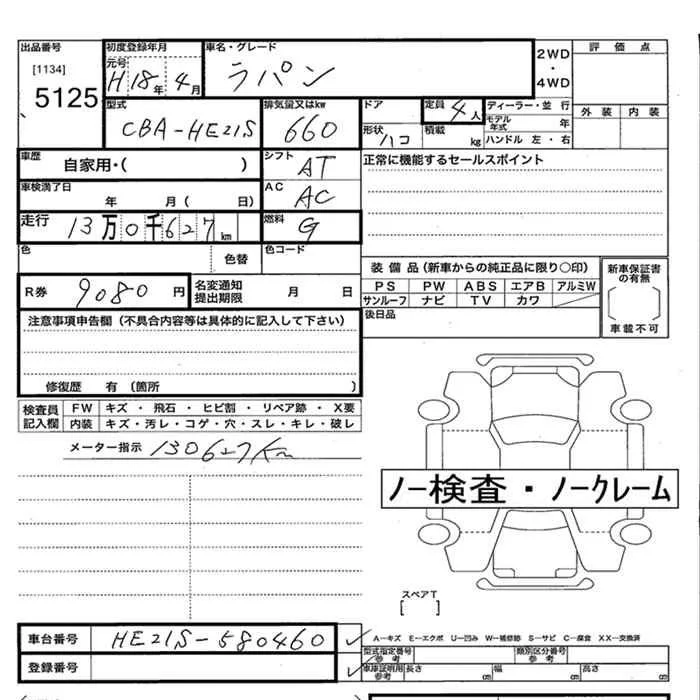 出品番号 初度登録年月 車名・グレード 2WD・4WD 評価点
[1134] 元号 H18年4月 ラパン
5125 外装 内装
型式 排気量又はkw ドア 定員 4人 ディーラー・並行
CBA-HE21S 660 形状 ハコ 積載 kg モデル年式 年
ハンドル 左・右
車歴 自家用・( ) シフト AT 正常に機能するセールスポイント
車検満了日 年 月( 日) AC AC
走行 13万0千627km 燃料 G
色 色替 色コード
装備品(新車からの純正品に限り○印) 新車保証書の有無
R券 9080円 名変通知提出期限 月 日 PS PW ABS エアB アルミW
サンルーフ ナビ TV カワ
注意事項申告欄(不具合内容等は具体的に記入して下さい) 後日品 車載不可
修復歴 有(箇所 )
検査員記入欄 FW キズ・飛石・ヒビ割・リペア跡・X要
内装 キズ・汚レ・コゲ・穴・スレ・キレ・破レ
メーター指示 130627km
ノー検査・ノークレーム
スペアT
[ ]
車台番号 HE21S-580460 A―キズ E―エクボ U―凹み W―補修跡 S―サビ C―腐食 XX―交換済
型式指定番号 参考 類別区分番号 参考
登録番号 車庫証明用参考 長さ cm 幅 cm 高さ cm